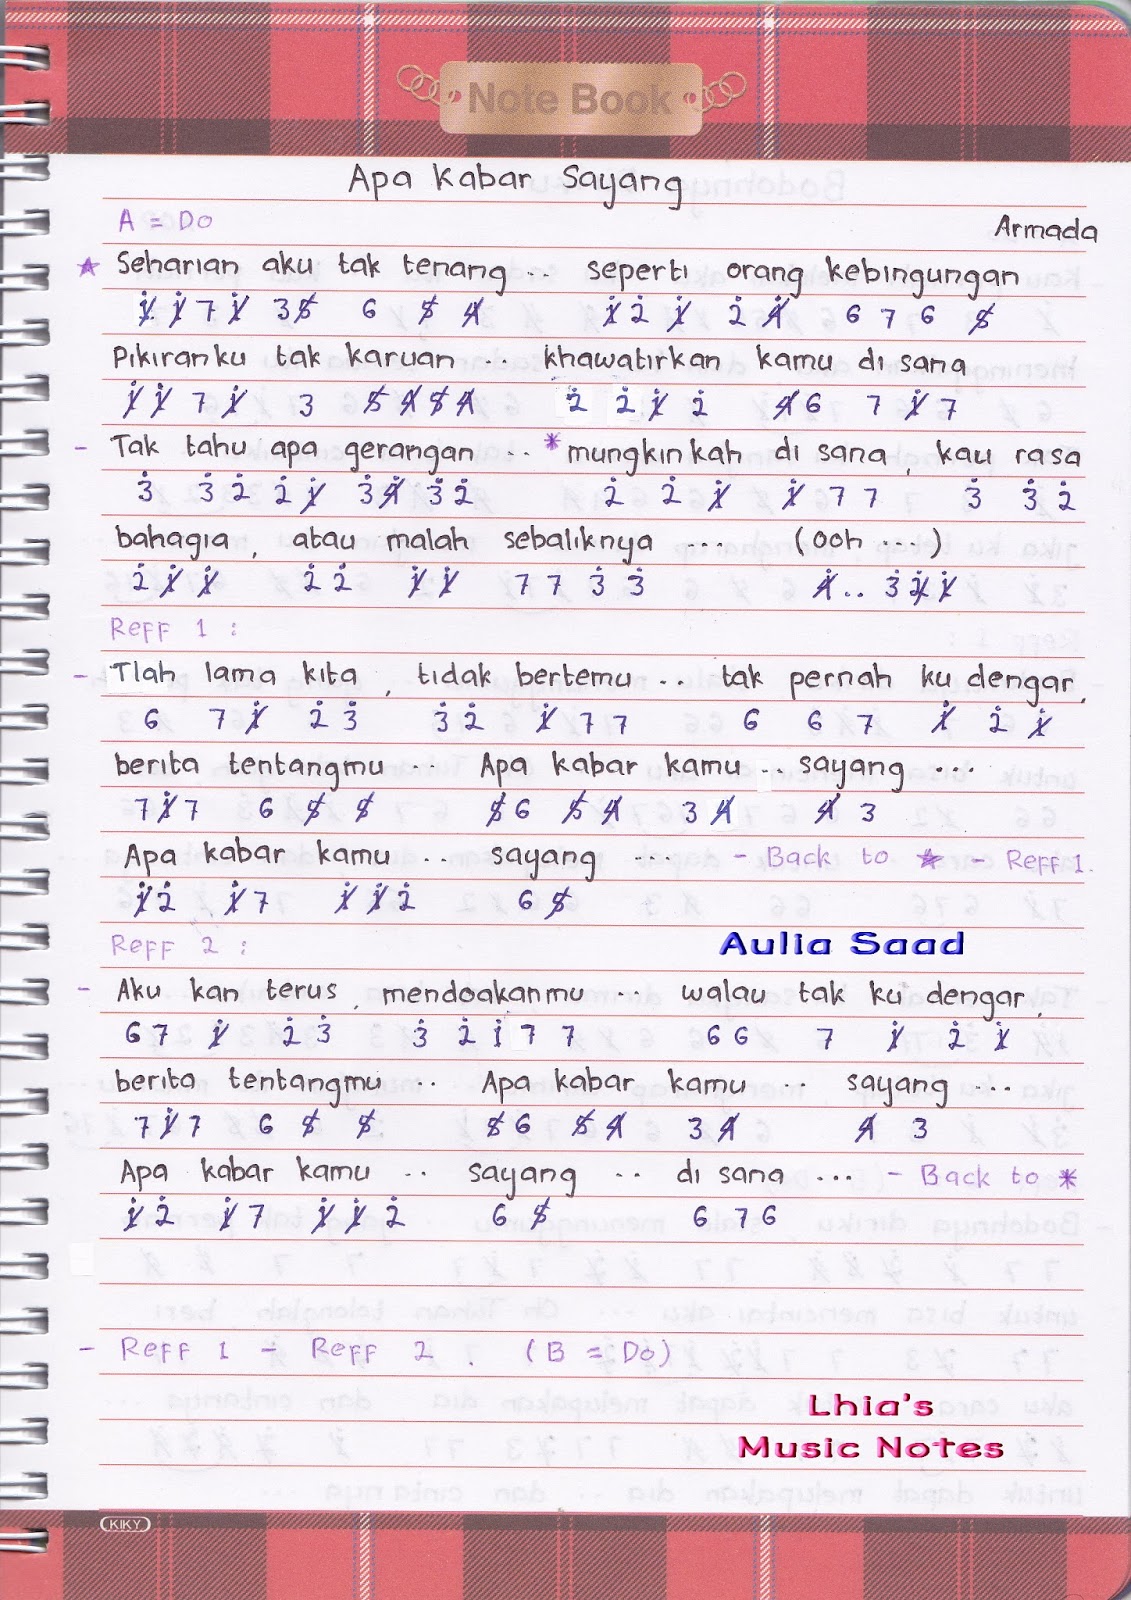 Note Book
Apa Kabar Sayang
A = Do
Armada
★ Seharian aku tak tenang .. seperti orang kebingungan
1̸̇ 1̸̇ 7 1̸̇ 3 5̸ 6 5̸ 4̸ 1̸̇ 2̇ 1̸̇ 2̇ 4̸̇ 6 7 6 5̸
Pikiranku tak karuan .. khawatirkan kamu di sana
1̸̇ 1̸̇ 7 1̸̇ 3 5̸ 4̸ 5̸ 4̸ 2̇ 2̇ 1̸̇ 2̇ 4̸ 6 7 1̸̇ 7
- Tak tahu apa gerangan .. * mungkinkah di sana, kau rasa
3̇ 3̇ 2̇ 2̇ 1̸̇ 3̇ 4̸̇ 3̇ 2̇ 2̇ 2̇ 1̸̇ 1̸̇ 7 7 3̇ 3̇ 2̇
bahagia, atau malah sebaliknya ... (ooh ...)
2̇ 1̸̇ 1̸̇ 2̇ 2̇ 1̸̇ 1̸̇ 7 7 3̇ 3̇ 4̸̇ .. 3̇ 2̸̇ 1̸̇ 1̸̇
Reff 1 :
- Tlah lama kita, tidak bertemu .. tak pernah ku dengar,
6 7 1̸̇ 2̇ 3̇ 3̇ 2̇ 1̸̇ 7 7 6 6 7 1̸̇ 2̇ 1̸̇
berita tentangmu .. Apa kabar kamu .. sayang ...
7 1̸̇ 7 6 5̸ 5̸ 5̸ 6 5̸ 4̸ 3 4̸ 4̸ 3
Apa kabar kamu .. sayang ... - Back to ★ - Reff 1.
1̸̇ 2̇ 1̸̇ 7 1̸̇ 1̸̇ 2̇ 6 5̸
Reff 2 :
Aulia Saad
- Aku kan terus, mendoakanmu .. walau tak ku dengar,
6 7 1̸̇ 2̇ 3̇ 3̇ 2̇ 1̇ 7 7 6 6 7 1̸̇ 2̇ 1̸̇
berita tentangmu .. Apa kabar kamu .. sayang ...
7 1̸̇ 7 6 5̸ 5̸ 5̸ 6 5̸ 4̸ 3 4̸ 4̸ 3
Apa kabar kamu .. sayang .. di sana ... - Back to *
1̸̇ 2̇ 1̸̇ 7 1̸̇ 1̸̇ 2̇ 6 5̸ 6 7 6
- Reff 1 - Reff 2. (B = Do)
Lhia's
Music Notes
KIKY